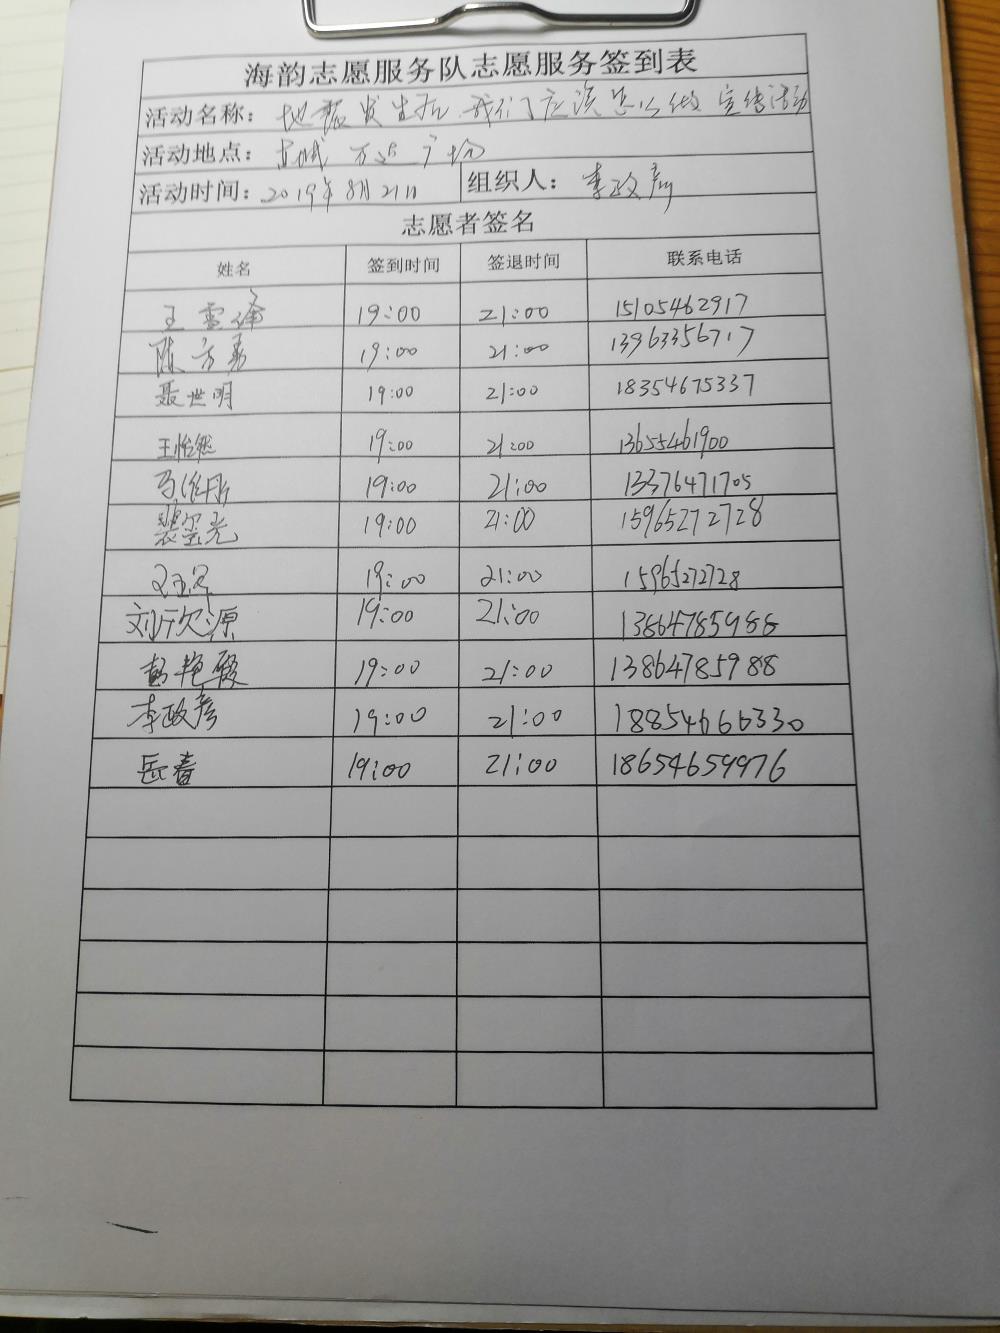 海韵志愿服务队志愿服务签到表
活动名称：地震发生后，我们应该怎么做 宣传活动
活动地点：万达广场
活动时间：2019年8月21日 组织人：李政彦
志愿者签名
姓名 签到时间 签退时间 联系电话
王雪 19:00 21:00 15105462917
陈方勇 19:00 21:00 13963356717
聂世明 19:00 21:00 18354675337
王怡然 19:00 21:00 13655461900
马 19:00 21:00 13376471705
裴奎光 19:00 21:00 15965272728
19:00 21:00 15965272728
刘欣源 19:00 21:00 13864785988
彭艳霞 19:00 21:00 13864785988
李政彦 19:00 21:00 18854666330
岳春 19:00 21:00 18654659976